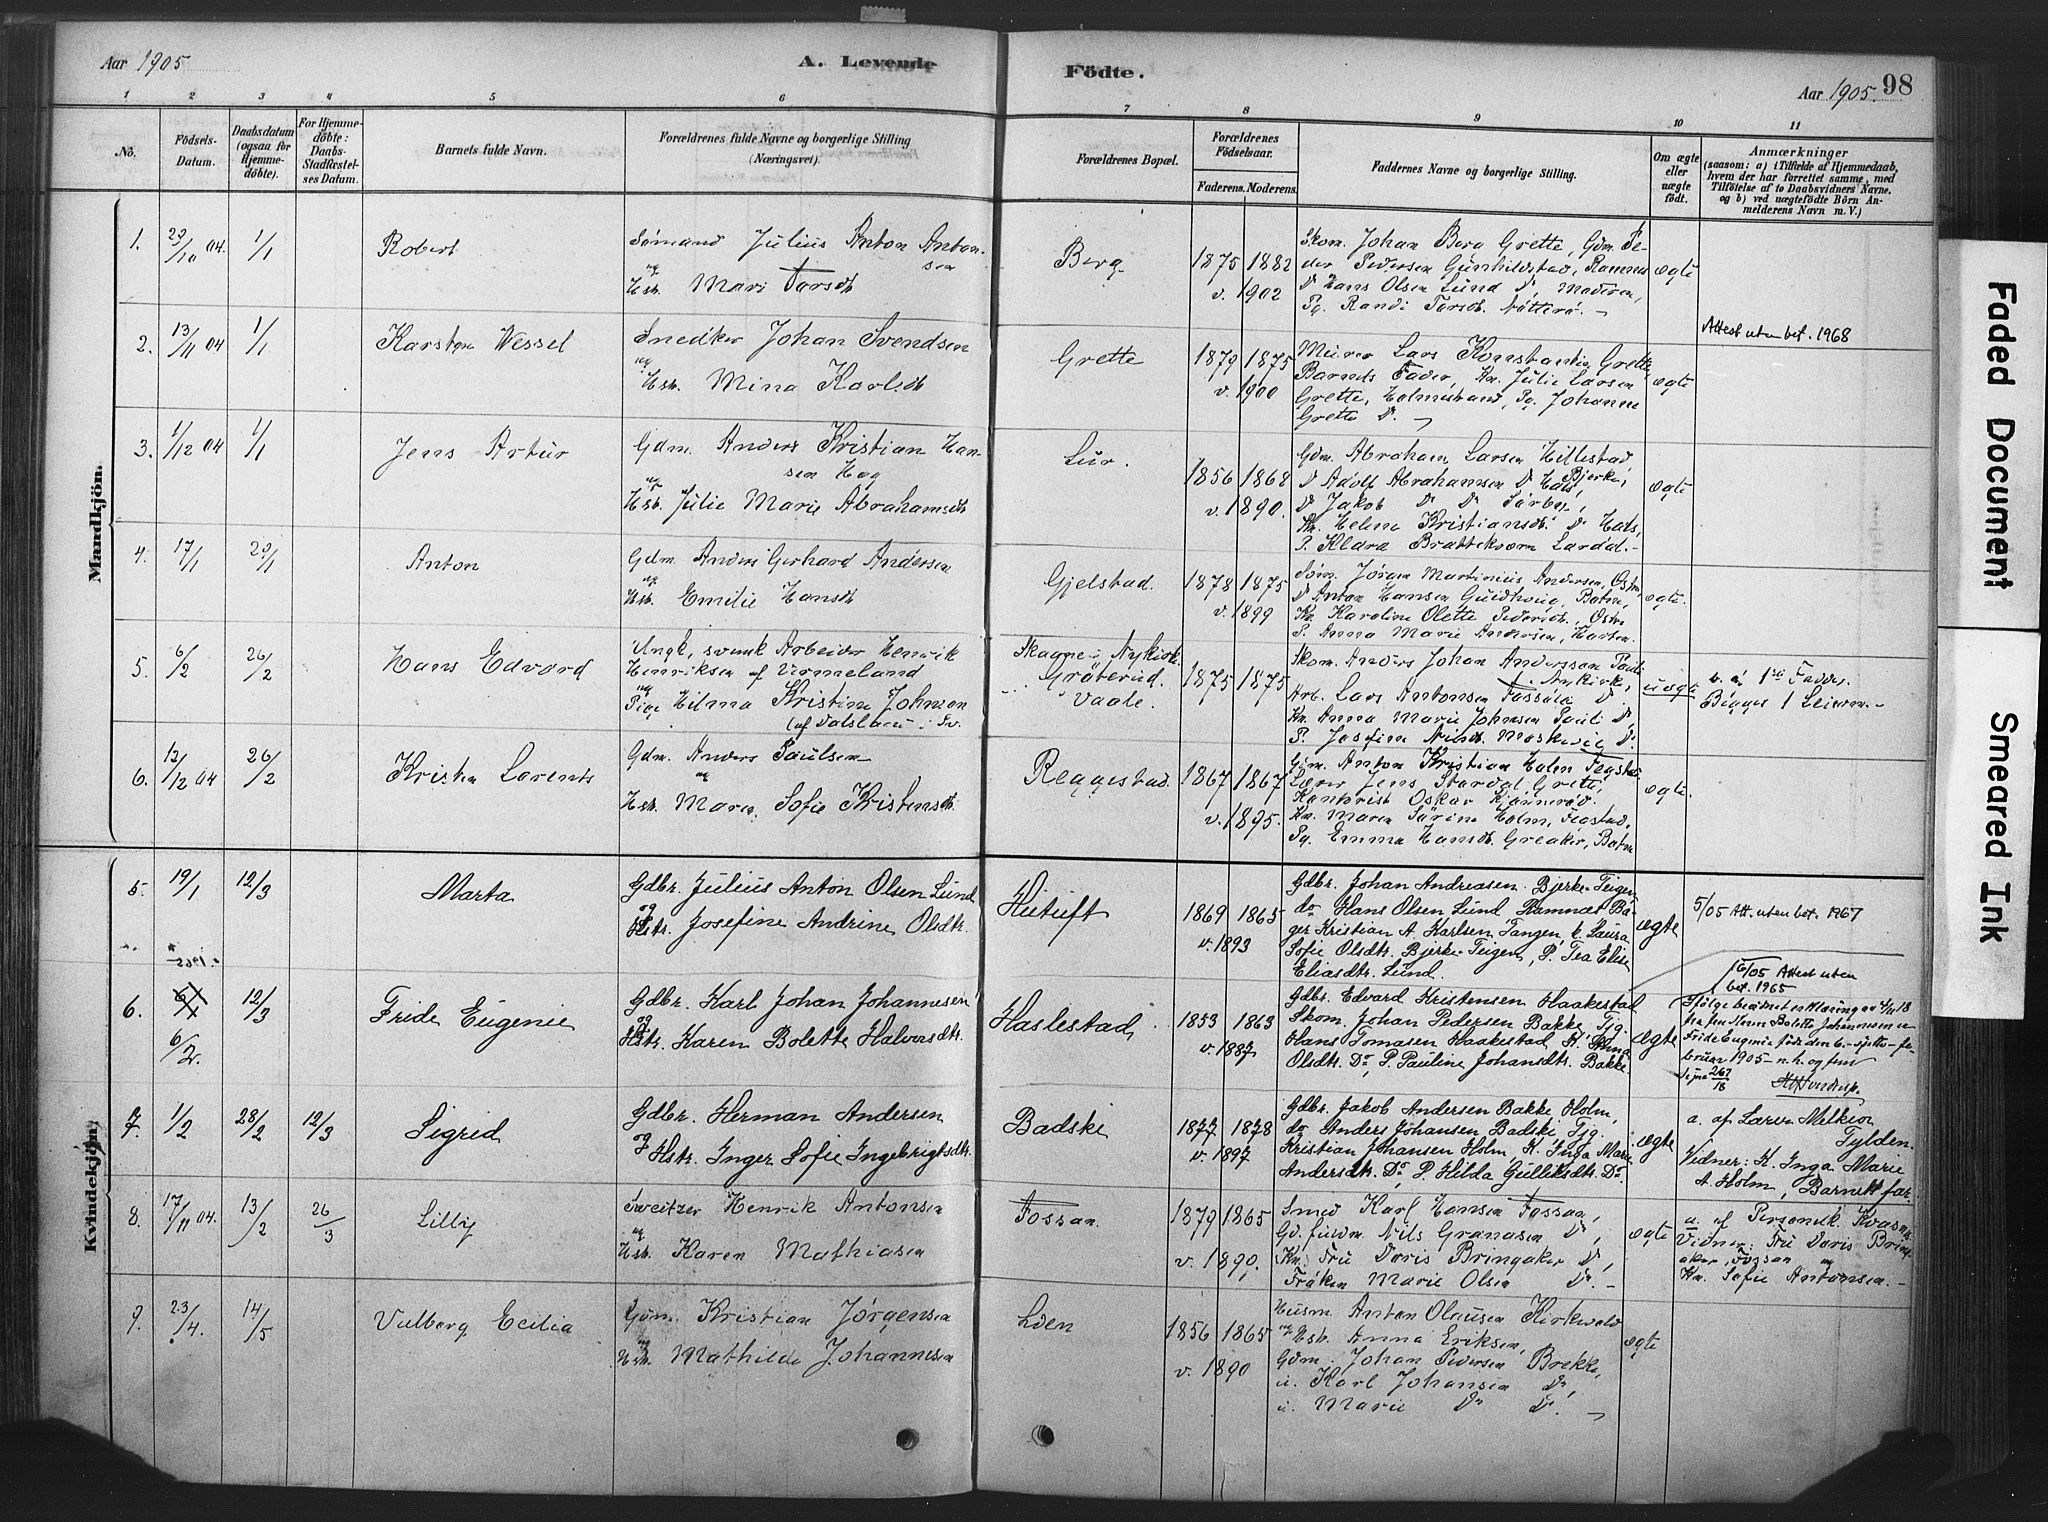 Aar 1905
A. Levende Födte.
Aar 1905. 98
1 2 3 4 5 6 7 8 9 10 11
No.
Födsels-Datum.
Daabsdatum (ogsaa for Hjemmedöbte).
For Hjemmedöbte: Daabs-Stadfæstelses Datum.
Barnets fulde Navn.
Forældrenes fulde Navne og borgerlige Stilling (Næringsvei).
Forældrenes Bopæl.
Forældrenes Födselsaar.
Faderens. Moderens.
Faddernes Navne og borgerlige Stilling.
Om ægte eller uægte födt.
Anmærkninger
(saasom: a) i Tilfælde af Hjemmedaab, hvem der har forrettet samme, med Tilföielse af to Daabsvidners Navne, og b) ved uægtefödte Börn Anmelderens Navn m. V.)
Mandkjön.
1. 29/10 04 1/1 Robert
Sømand Julius Anton Antonsen
og Hst. Mari Torsdt
Berg
1875 1882
v. 1902
Skom. Johan Berg Grette, Gdm. Peder Pedersen Gunhildstad, Ramnes
Do Hans Olsen Lund Do, Moderen,
Pg. Randi Torsdt. Nøtterø.
ægte
2. 13/11 04 1/1 Karsten Wessel
Snedker Johan Svendsen
og Hst. Mina Karlsdt
Grette
1879 1875
v. 1900
Murer Lars Konstantin Grette,
Barnets Fader, Kn. Julie Larsen
Grette, Holmestrand, Pg. Johanne
Grette Do.
ægte
Attest uten bet. 1968
3. 1/12 04 1/1 Jens Artur
Gdm. Anders Kristian Hansen Hag
og Hst. Julie Marie Abrahamsdt
Lur.
1856 1868
v. 1890.
Gdm. Abraham Larsen Hillestad,
Do Adolf Abrahamsen Do Hals, Bjerke,
Do Jakob Do Do Sørby,
Kn. Helene Kristiansdt. Do Hals,
P. Klara Brattekværn Lardal.
ægte
4. 17/1 29/1 Anton
Gdm. Anders Gerhard Andersen
og Hst. Emilie Hansdt
Gjelstad.
1878 1875
v. 1899
Søm. Jørgen Martinius Andersen, Østre
Do Anton Hansen Guldhaug, Botne,
Kn. Karoline Olette Pedersdt. Østre
P. Anna Marie Andersen, Horten.
ægte.
5. 6/2 26/2 Hans Edvard
Ungk. svensk Arbeider Henrik
Henriksen af Vermeland
og Pige Hilma Kristine Johnson
(af Dalsland i Sv.
Skagge i Nykirk.
Gråterud.
Vaale.
1875 1875
Skom. Anders Johan Anderssen Pauli
Nykirk,
Arb. Lars Antonsen Fossaas Do.
Kn. Anna Marie Johnsen Pauli Do,
P. Josefine Moskvil Do.
uægte
b. 1ste Fadder.
Begges 1 Leierm.
6. 12/12 04 26/2 Kristen Lorents
Gdm. Anders Paulsen
og Hst. Maren Sofie Kristensdt.
Reggestad.
1867 1867
v. 1895.
Gdm. Anton Kristian Holm Fegstad
Lærer Jens Stordal, Grette,
Kontorist Oskar Kjønnerød.
Kn. Maren Sørine Holm, Fegstad,
Pg. Emma Hansdt. Greaker, Botne
ægte.
Kvindekjön.
5. 19/1 12/3 Marta
Gdbr. Julius Anton Olsen Lund
og Hstr. Josefine Andrine Olsdtr.
Hutuft
1869 1865
v. 1893
Gdbr. Johan Andreasen Bjerke-Teigen,
do Hans Olsen Lund Ramnæs Bager Kristian A. Karlsen, Tangen, K. Laura
Sofie Olsdtr. Bjerke-Teigen, P. Tea Elise
Eliasdtr. Lund.
ægte
5/05 Att. uten bet. 1967
6. 6/1 6/2. 12/3 Fride Eugenie
Gdbr. Karl Johan Johannesen
og Hstr. Karen Bolette Halvorsdtr.
Haslestad
1853 1863
v. 1887
Gdbr. Edvard Kristensen Haakestad
Skom. Johan Pedersen Bakke, Tjg.
Hans Tomasen Haakestad K. Anne
Olsdtr. Do, P. Pauline Johansdtr. Bakke
ægte
6/05 Attest uten
bet. 1965
Ifølge beediget erklæring av 4/10 18
fra fru Karen Bolette Johannesen er
Fride Eugenie født den 6.-sjette-februar 1905 – n. h. og fem
Se jnr 267/18
7. 1/2 28/2 12/3 Sigrid
Gdbr. Herman Andersen
og Hstr. Inger Sofie Ingebrigtsdtr.
Badski
1877 1878
v. 1897
Gdbr. Jakob Andersen Bakke Holm,
do Anders Johansen Badski, Tjg.
Kristian Johansen Holm, K. Inga Marie
Andersdtr. Do, P. Hilda Gulliksdtr. Do.
ægte
a. af Lærer Melkior
Tylden.
Vidner: K. Inga Marie
A. Holm, Barnets far.
8. 17/11 04. 13/2 26/3 Lilly
Sveitzer Henrik Antonsen
og Hst. Karen Mathiasen
Fossan.
1879 1865
v. 1890.
Smed Karl Hansen Fossan,
Gd. fuldm. Nils Granasen Do,
Kn. Fru Doris Bringaker Do,
Frøken Marie Olsen Do.
ægte
a. af Personelk. Kvasnes
Vidner: Fru Doris Bringaker, Fossan og
Kn. Sofie Antonsen.
9. 23/4. 14/5 Valborg Ecilia
Gdm. Kristian Jørgensen
og Hst. Mathilde Johannesen
Loen
1856 1865
v. 1890
Husm. Anton Olausen Kirkevold
og Hst. Anna Eriksen,
Gdm. Johan Pedersen Brekke,
u. Karl Johansen Do,
u. Marie Do Do.
ægte
Faded Document
Smeared Ink